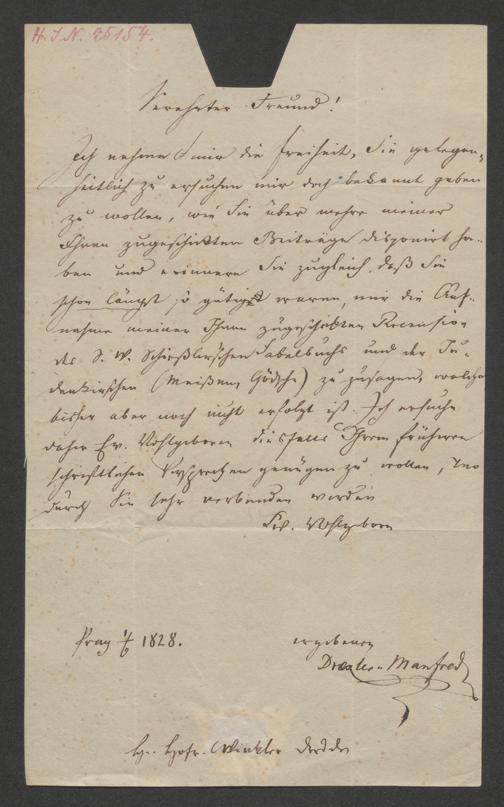 H. I. N. 25154.
Verehrter Freund!
Ich nehme mir die Freiheit, Sie gelegen-
heitlich zu ersuchen mir doch bekannt geben
zu wollen, wie Sie über mehre meiner
Ihnen zugeschickten Beiträge disponirt ha-
ben und erinnere Sie zugleich, daß Sie
schon längst so gütig waren, mir die Auf-
nahme meiner Ihnen zugeschickten Recension
des S. W. Schießler'schen Fabelbuchs und der
(Meißen, Gödsche) zuzusagen, welche
bisher aber noch nicht erfolgt ist. Ich ersuche
daher Ew. Wohlgeboren diesfalls Ihrem früheren
schriftlichen Versprechen genügen zu wollen, wo-
durch Sie sehr verbinden werden
Ew. Wohlgeborn
Prag 1828.
ergebenen
Dräxler-Manfred
Hofr. Winkler Dresden